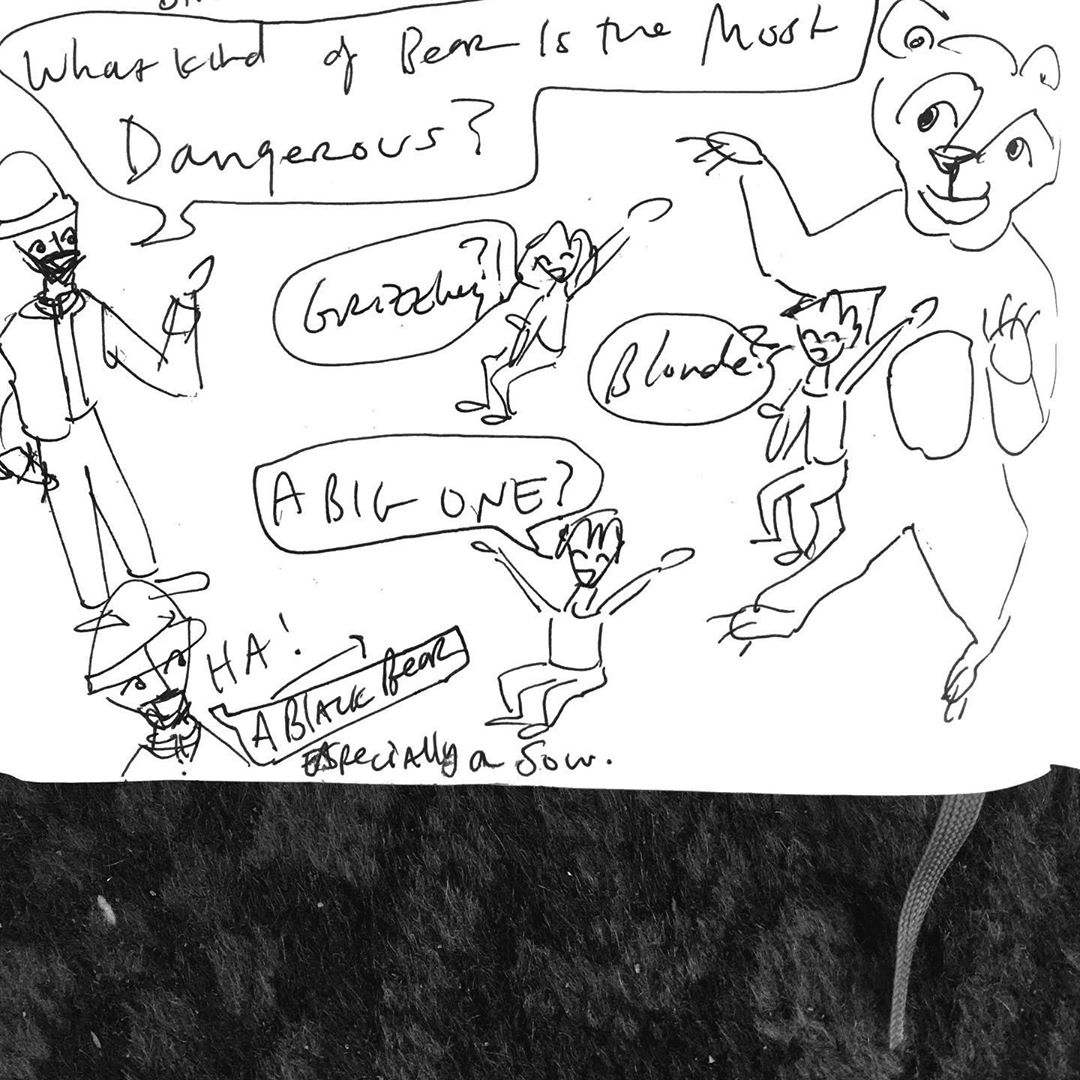 What kind of Bear Is the Most
Dangerous?
Grizzley?!
Blonde?
A BIG ONE?
HA!
A Black Bear
Especially a Sow.